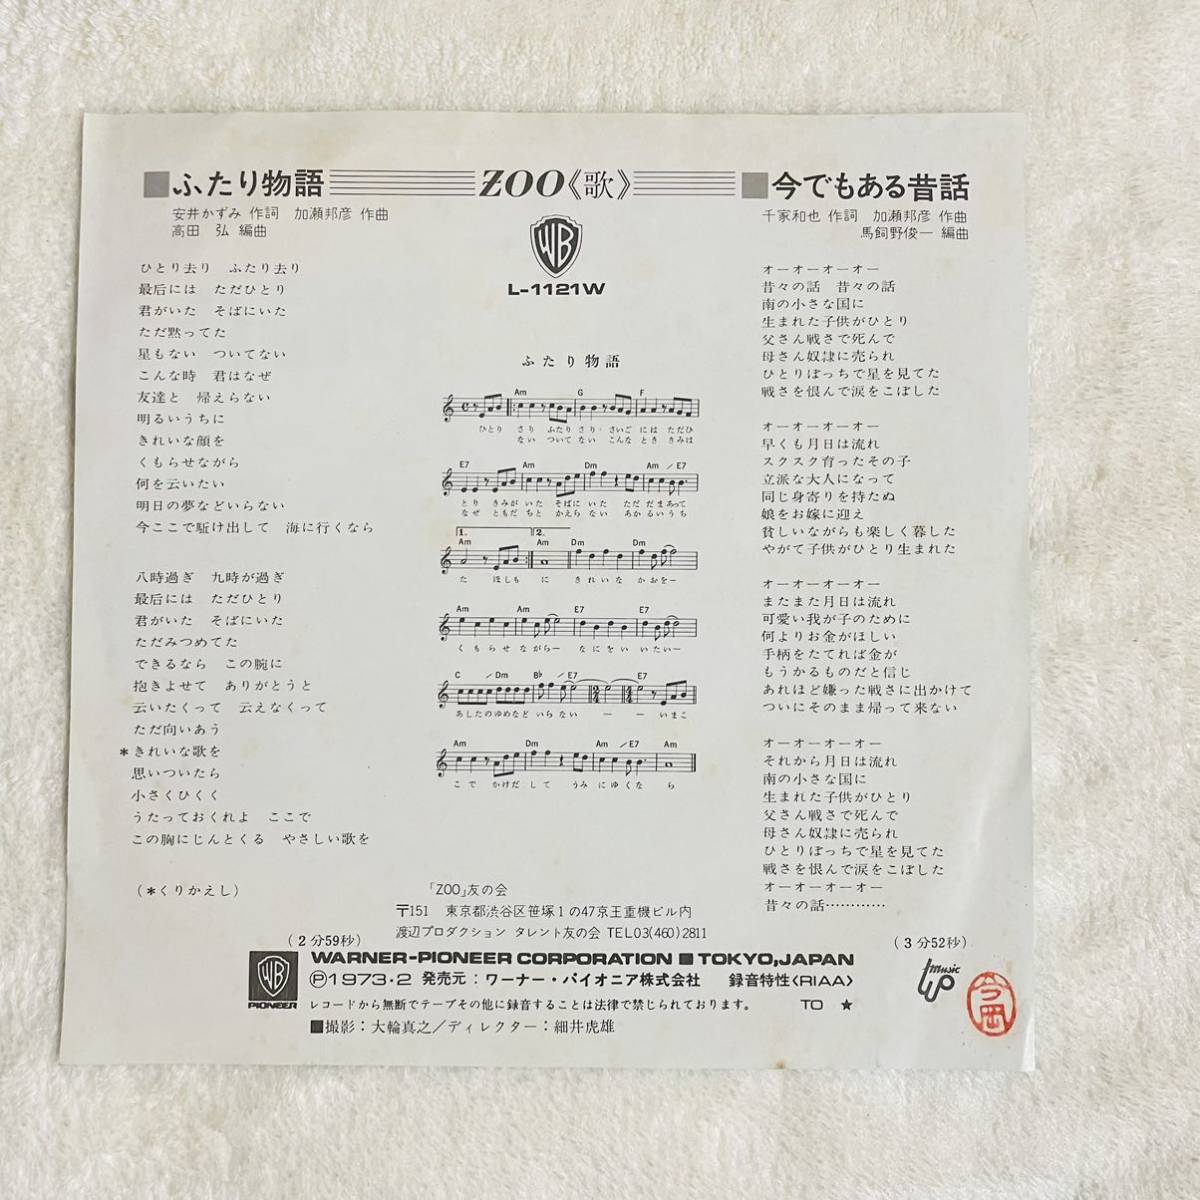 ■ふたり物語
ZOO《歌》
■今でもある昔話
安井かずみ 作詞 加瀬邦彦 作曲
高田 弘 編曲
千家和也 作詞 加瀬邦彦 作曲
馬飼野俊一 編曲
WB
L-1121W
ひとり去り ふたり去り
最后には ただひとり
君がいた そばにいた
ただ黙ってた
星もない ついてない
こんな時 君はなぜ
友達と 帰えらない
明るいうちに
きれいな顔を
くもらせながら
何を云いたい
明日の夢などいらない
今ここで駈け出して 海に行くなら
八時過ぎ 九時が過ぎ
最后には ただひとり
君がいた そばにいた
ただみつめてた
できるなら この腕に
抱きよせて ありがとうと
云いたくって 云えなくって
ただ向いあう
*きれいな歌を
思いついたら
小さくひくく
うたっておくれよ ここで
この胸にじんとくる やさしい歌を
(*くりかえし)
(2分59秒)
ふたり物語
Am G F
ひとり さり ふたり さり・さいごに は ただひ
ない ついて ない こんな とき きみは
E7 Am Dm Am/E7
とり きみが いた そばに いた ただ だ まあって
なぜ ともだ ちと かえら ない あかる いうち
1. 2.
Am Am Dm Dm
た ほしも に きれ いな か おを ー
Am Am E7 E7
くも らせ ながらー なにを いい たいー
C /Dm B♭ /E7 E7
あしたのゆめなど いらない ー ー いまこ
Am Dm Am /E7 Am
こで かけだ して うみ にゆく な ら
オーオーオーオー
昔々の話 昔々の話
南の小さな国に
生まれた子供がひとり
父さん戦さで死んで
母さん奴隷に売られ
ひとりぼっちで星を見てた
戦さを恨んで涙をこぼした
オーオーオーオー
早くも月日は流れ
スクスク育ったその子
立派な大人になって
同じ身寄りを持たぬ
娘をお嫁に迎え
貧しいながらも楽しく暮した
やがて子供がひとり生まれた
オーオーオーオー
またまた月日は流れ
可愛い我が子のために
何よりお金がほしい
手柄をたてれば金が
もうかるものだと信じ
あれほど嫌った戦さに出かけて
ついにそのまま帰って来ない
オーオーオーオー
それから月日は流れ
南の小さな国に
生まれた子供がひとり
父さん戦さで死んで
母さん奴隷に売られ
ひとりぼっちで星を見てた
戦さを恨んで涙をこぼした
オーオーオーオー
昔々の話…………
(3分52秒)
「ZOO」友の会
〒151 東京都渋谷区笹塚1の47京王重機ビル内
渡辺プロダクション タレント友の会 TEL03(460)2811
WB
PIONEER
WARNER-PIONEER CORPORATION ■ TOKYO,JAPAN
Ⓟ1973・2 発売元:ワーナー・パイオニア株式会社 録音特性〈RIAA〉
レコードから無断でテープその他に録音することは法律で禁じられております。 TO ★
■撮影:大輪真之/ディレクター:細井虎雄
music
今岡